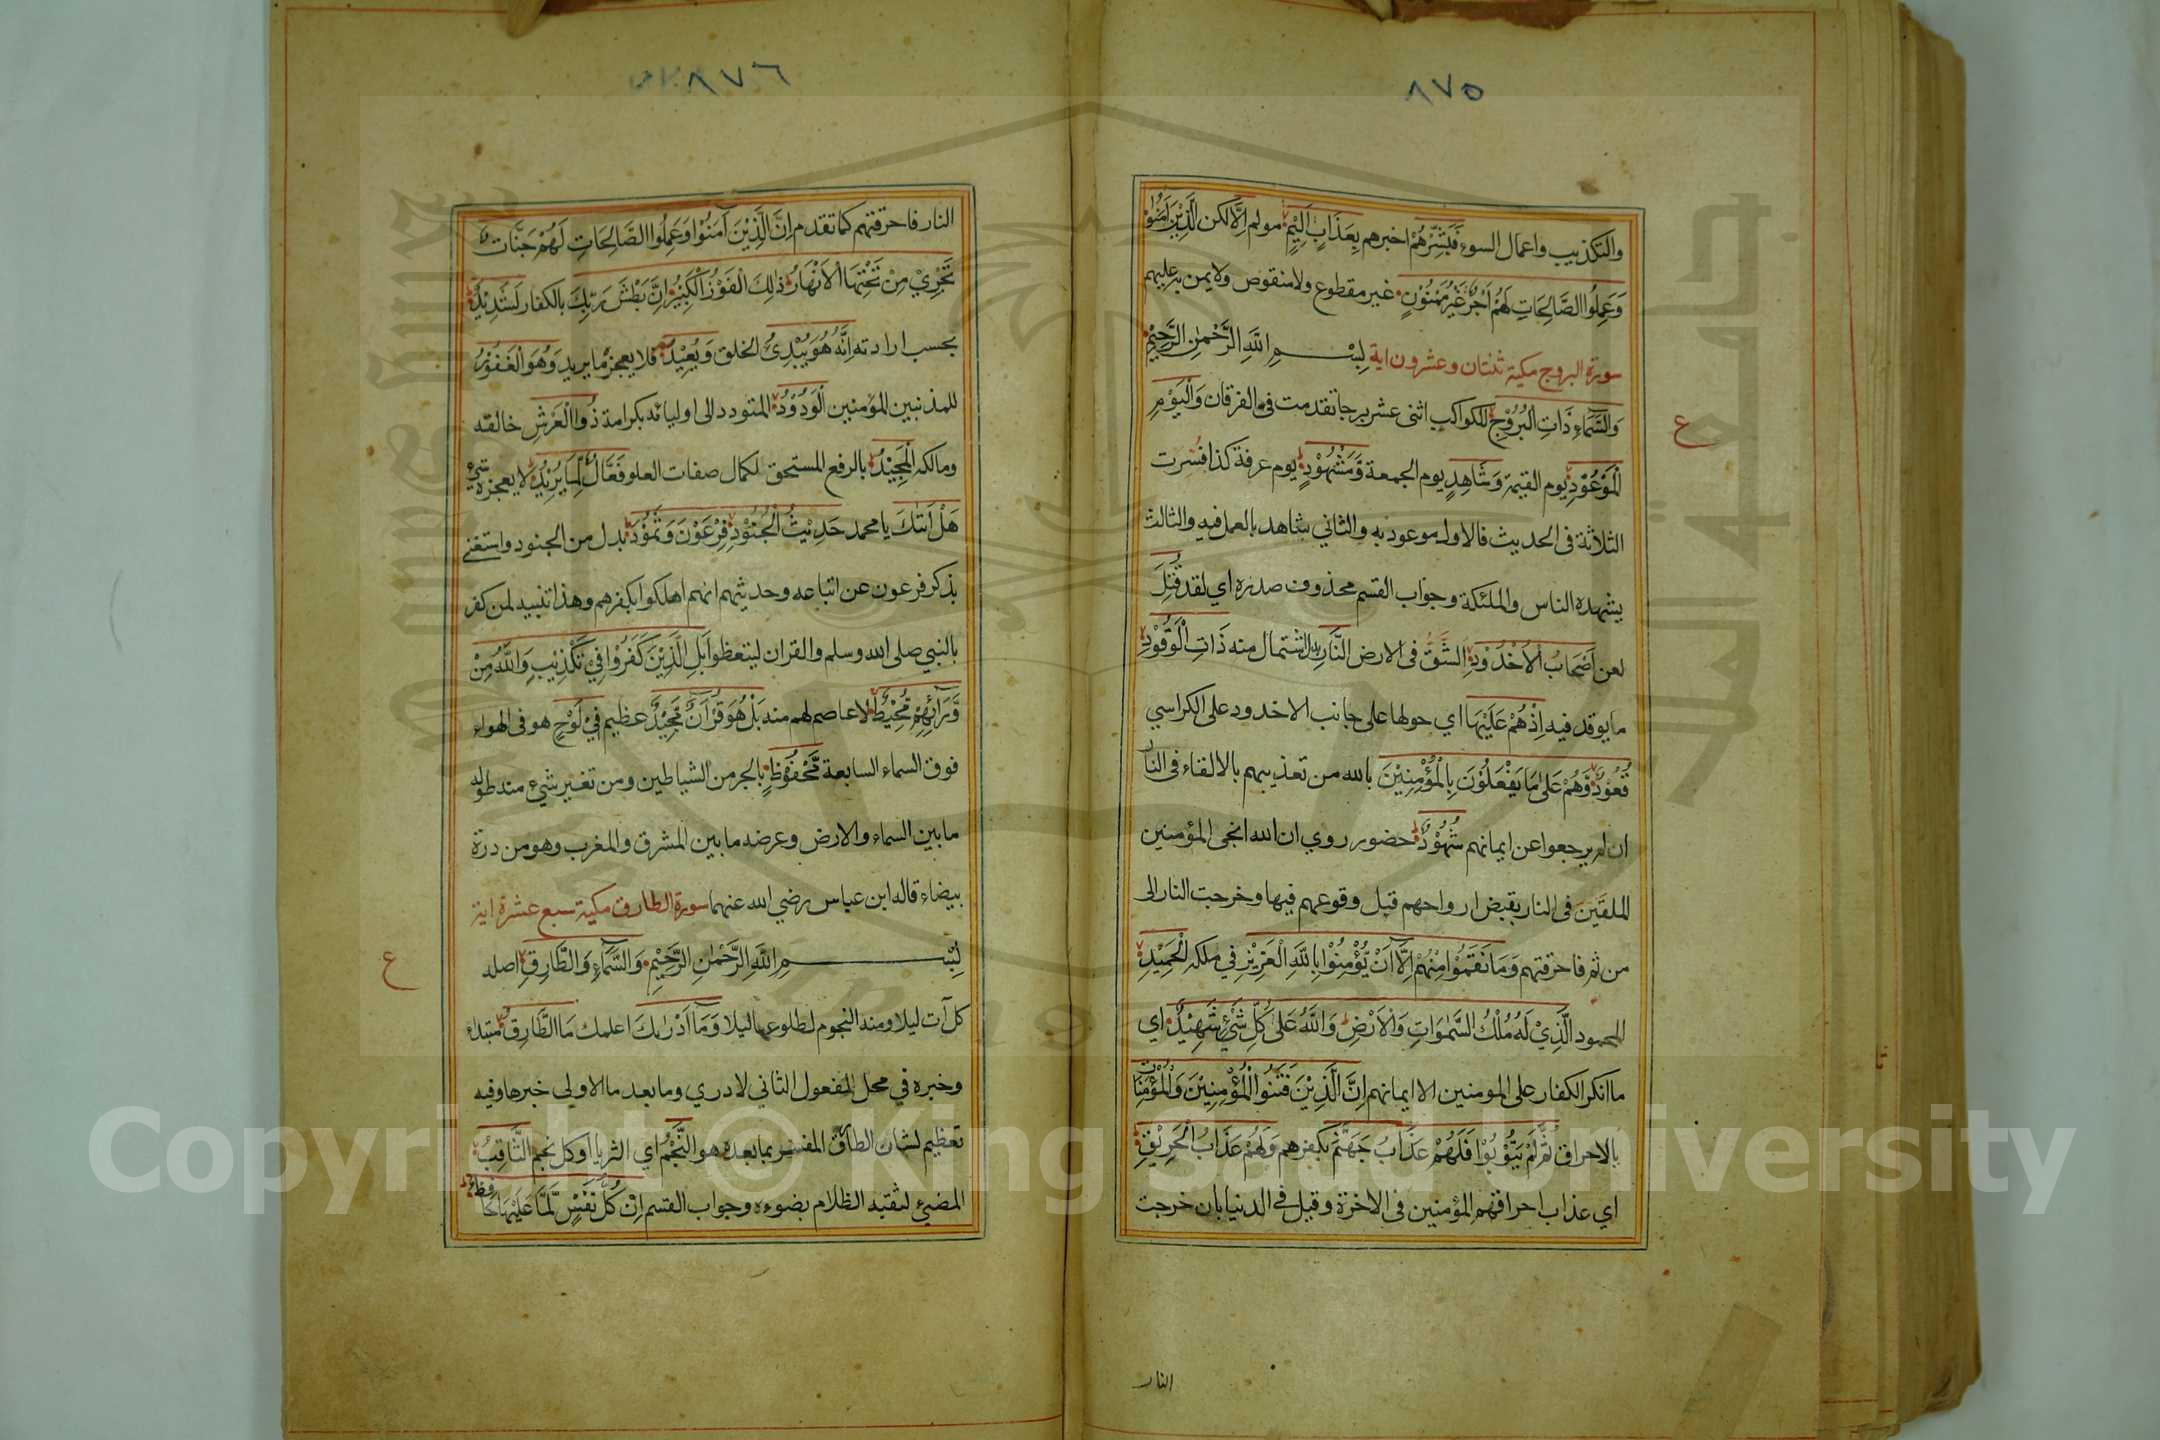 ٨٧٥
والتكذيب واعمال السوء فَبَشِّرْهُمْ اخبرهم بِعَذَابٍ اَلِيْمٍ مولم اِلَّا لكن الَّذِيْنَ اٰمَنُوْا
وَعَمِلُوا الصَّالِحَاتِ لَهُمْ اَجْرٌ غَيْرُ مَمْنُوْنٍ غير مقطوع ولا منقوص ولا يمن به عليهم
سورة البروج مكية ثنتان وعشرون اية بِسْمِ اللهِ الرَّحْمٰنِ الرَّحِيْمِ
وَالسَّمَاءِ ذَاتِ الْبُرُوْجِ للكواكب اثنى عشر برجا تقدمت في الفرقان وَالْيَوْمِ
ع
الْمَوْعُوْدِ يوم القيمة وَشَاهِدٍ يوم الجمعة وَّمَشْهُوْدٍ يوم عرفة كذا فسرت
الثلاثة في الحديث فالاول موعود به والثاني شاهد بالعمل فيه والثالث
يشهده الناس والملئكة وجواب القسم محذوف صدره اي لقد قُتِلَ
لعن اَصْحَابُ الْاُخْدُوْدِ الشَّقِّ في الارض النَّارِ بدل اشتمال منه ذَاتِ الْوَقُوْدِ
ما يوقد فيه اِذْ هُمْ عَلَيْهَا اي حولها على جانب الاخدود على الكراسي
قُعُوْدٌ وَّهُمْ عَلٰى مَا يَفْعَلُوْنَ بِالْمُؤْمِنِيْنَ بالله من تعذيبهم بالالقاء في النار
ان لم يرجعوا عن ايمانهم شُهُوْدٌ حضور روي ان الله انجى المؤمنين
الملقَين في النار بقبض ارواحهم قبل وقوعهم فيها وخرجت النار الى
من ثم فاحرقتهم وَمَا نَقَمُوْا مِنْهُمْ اِلَّا اَنْ يُّؤْمِنُوْا بِاللهِ الْعَزِيْزِ في ملكه الْحَمِيْدِ
المحمود الَّذِيْ لَهُ مُلْكُ السَّمٰوَاتِ وَالْاَرْضِ وَاللهُ عَلٰى كُلِّ شَيْءٍ شَهِيْدٌ اي
ما انكر الكفار على المومنين الا ايمانهم اِنَّ الَّذِيْنَ فَتَنُوا الْمُؤْمِنِيْنَ وَالْمُؤْمِنَاتِ
بالاحراق ثُمَّ لَمْ يَتُوْبُوْا فَلَهُمْ عَذَابُ جَهَنَّمَ بكفرهم وَلَهُمْ عَذَابُ الْحَرِيْقِ
اي عذاب احراقهم المؤمنين في الاخرة وقيل في الدنيا بان خرجت
النار
٨٧٦
النار فاحرقتهم كما تقدم اِنَّ الَّذِيْنَ اٰمَنُوْا وَعَمِلُوا الصَّالِحَاتِ لَهُمْ جَنَّاتٌ
تَجْرِيْ مِنْ تَحْتِهَا الْاَنْهَارُ ذٰلِكَ الْفَوْزُ الْكَبِيْرُ اِنَّ بَطْشَ رَبِّكَ بالكفار لَشَدِيْدٌ
بحسب ارادته اِنَّهُ هُوَ يُبْدِئُ الخلق وَيُعِيْدُ فلا يعجزه ما يريد وَهُوَ الْغَفُوْرُ
للمذنبين المؤمنين الْوَدُوْدُ المتودد الى اوليائه بكرامة ذُو الْعَرْشِ خالقه
ومالكه الْمَجِيْدُ بالرفع المستحق لكمال صفات العلو فَعَّالٌ لِّمَا يُرِيْدُ لا يعجزه شيء
هَلْ اَتٰىكَ يا محمد حَدِيْثُ الْجُنُوْدِ فِرْعَوْنَ وَثَمُوْدَ بدل من الجنود واستغنى
بذكر فرعون عن اتباعه وحديثهم انهم اهلكوا بكفرهم وهذا تنبيه لمن كفر
بالنبي صلى الله وسلم والقران ليتعظوا بَلِ الَّذِيْنَ كَفَرُوْا فِيْ تَكْذِيْبٍ وَاللهُ مِنْ
وَّرَآئِهِمْ مُّحِيْطٌ لا عاصم لهم منه بَلْ هُوَ قُرْاٰنٌ مَّجِيْدٌ عظيم فِيْ لَوْحٍ هو في الهواء
فوق السماء السابعة مَّحْفُوْظٍ بالجر من الشياطين ومن تغير شيء منه طوله
ما بين السماء والارض وعرضه ما بين المشرق والمغرب وهو من درة
بيضاء قاله ابن عباس رضي الله عنهما سورة الطارق مكية سبع عشرة اية
بِسْمِ اللهِ الرَّحْمٰنِ الرَّحِيْمِ وَالسَّمَآءِ وَالطَّارِقِ اصله
ع
كل آت ليلا ومنه النجوم لطلوعها ليلا وَمَا اَدْرٰىكَ اعلمك مَا الطَّارِقُ مبتداء
وخبره في محل المفعول الثاني لادري وما بعد ما الاولى خبرها وفيه
تعظيم لشان الطارق المفسر بما بعده هو النَّجْمُ اي الثريا او كل نجم الثَّاقِبُ
المضيء لثقبه الظلام بضوءه وجواب القسم اِنْ كُلُّ نَفْسٍ لَّمَّا عَلَيْهَا حَافِظٌ
جامعة الملك سعود
King Saud University
Copyright © King Saud University